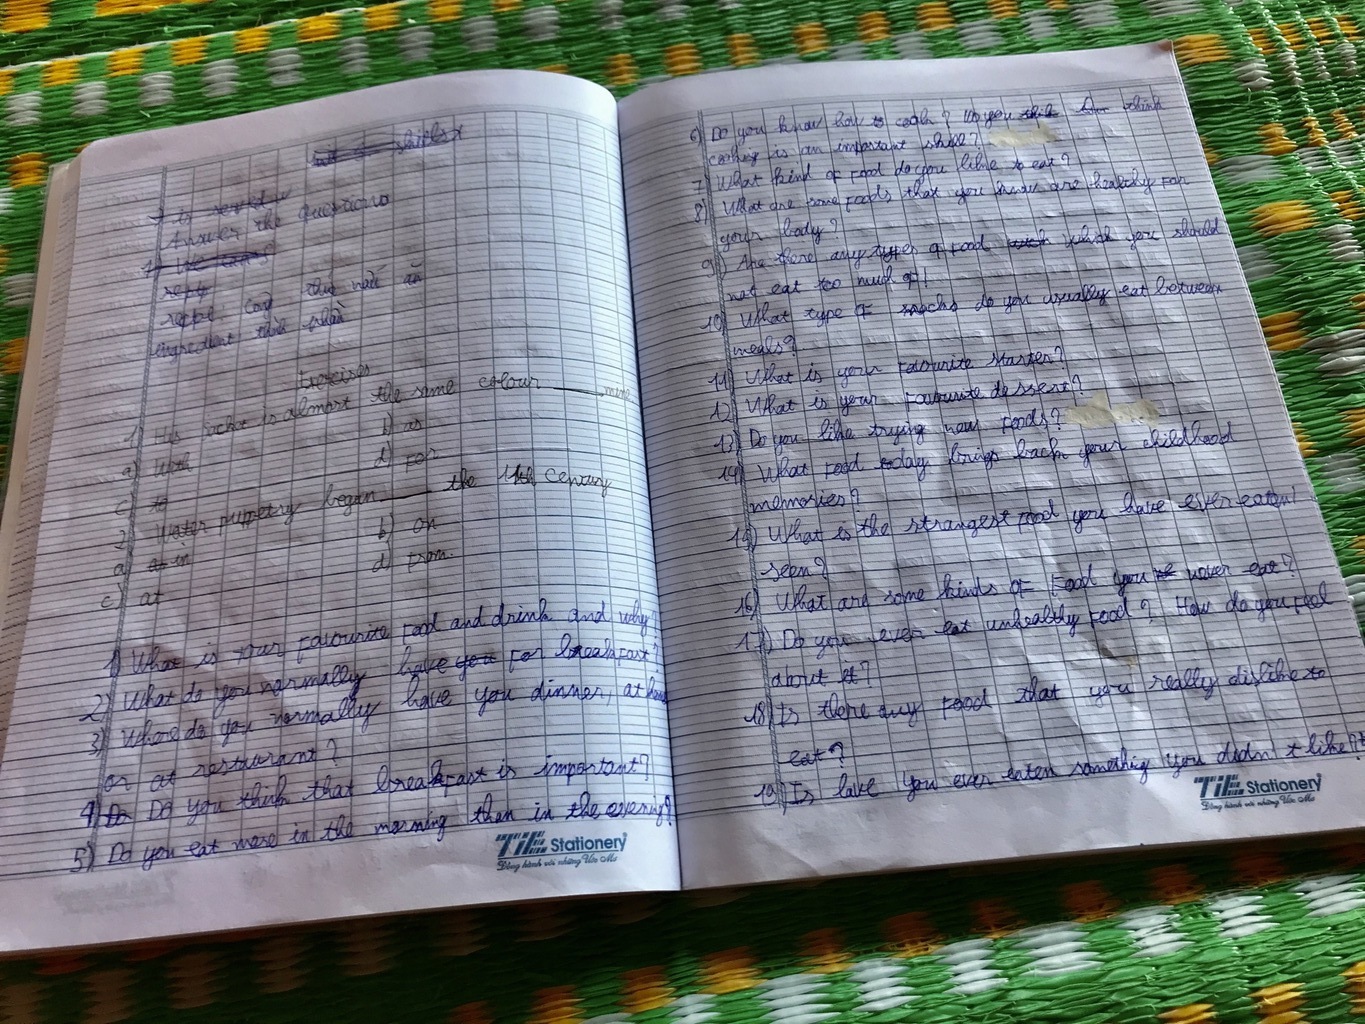 Answer the questions
công thức nấu ăn
ingredient thành phần
Exercises
1) His jacket is almost the same colour ____ mine
a) with b) as
c) to d) for
2) Water puppetry began ____ the 11th century
a) in b) on
c) at d) from.
1) What is your favourite food and drink and why?
2) What do you normally have for breakfast?
3) Where do you normally have you dinner, at home
or at restaurant?
4) Do you think that breakfast is important?
5) Do you eat more in the morning than in the evening?
TiE Stationery
Đồng hành với những Ước Mơ
6) Do you know how to cook? Do you think
cooking is an important skill?
7) What kind of food do you like to eat?
8) What are some foods that you know are healthy for
your body?
9) Are there any types of food which you should
not eat too much of?
10) What type of snacks do you usually eat between
meals?
11) What is your favourite starter?
12) What is your favourite dessert?
13) Do you like trying new foods?
14) What food today brings back your childhood
memories?
15) What is the strangest food you have ever eaten/
seen?
16) What are some kinds of food you never eat?
17) Do you ever eat unhealthy food? How do you feel
about it?
18) Is there any food that you really dislike to
eat?
19) Is have you ever eaten something you didn't like?
TiE Stationery
Đồng hành với những Ước Mơ